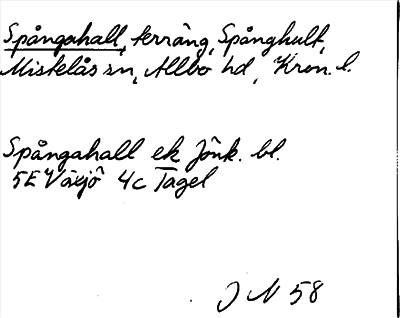 Spångahall, terräng, Spånghult,
Mistelås sn, Allbo hd, Kron. l.
Spångahall ek Jönk. bl.
5E Växjö 4c Tagel
J N 58